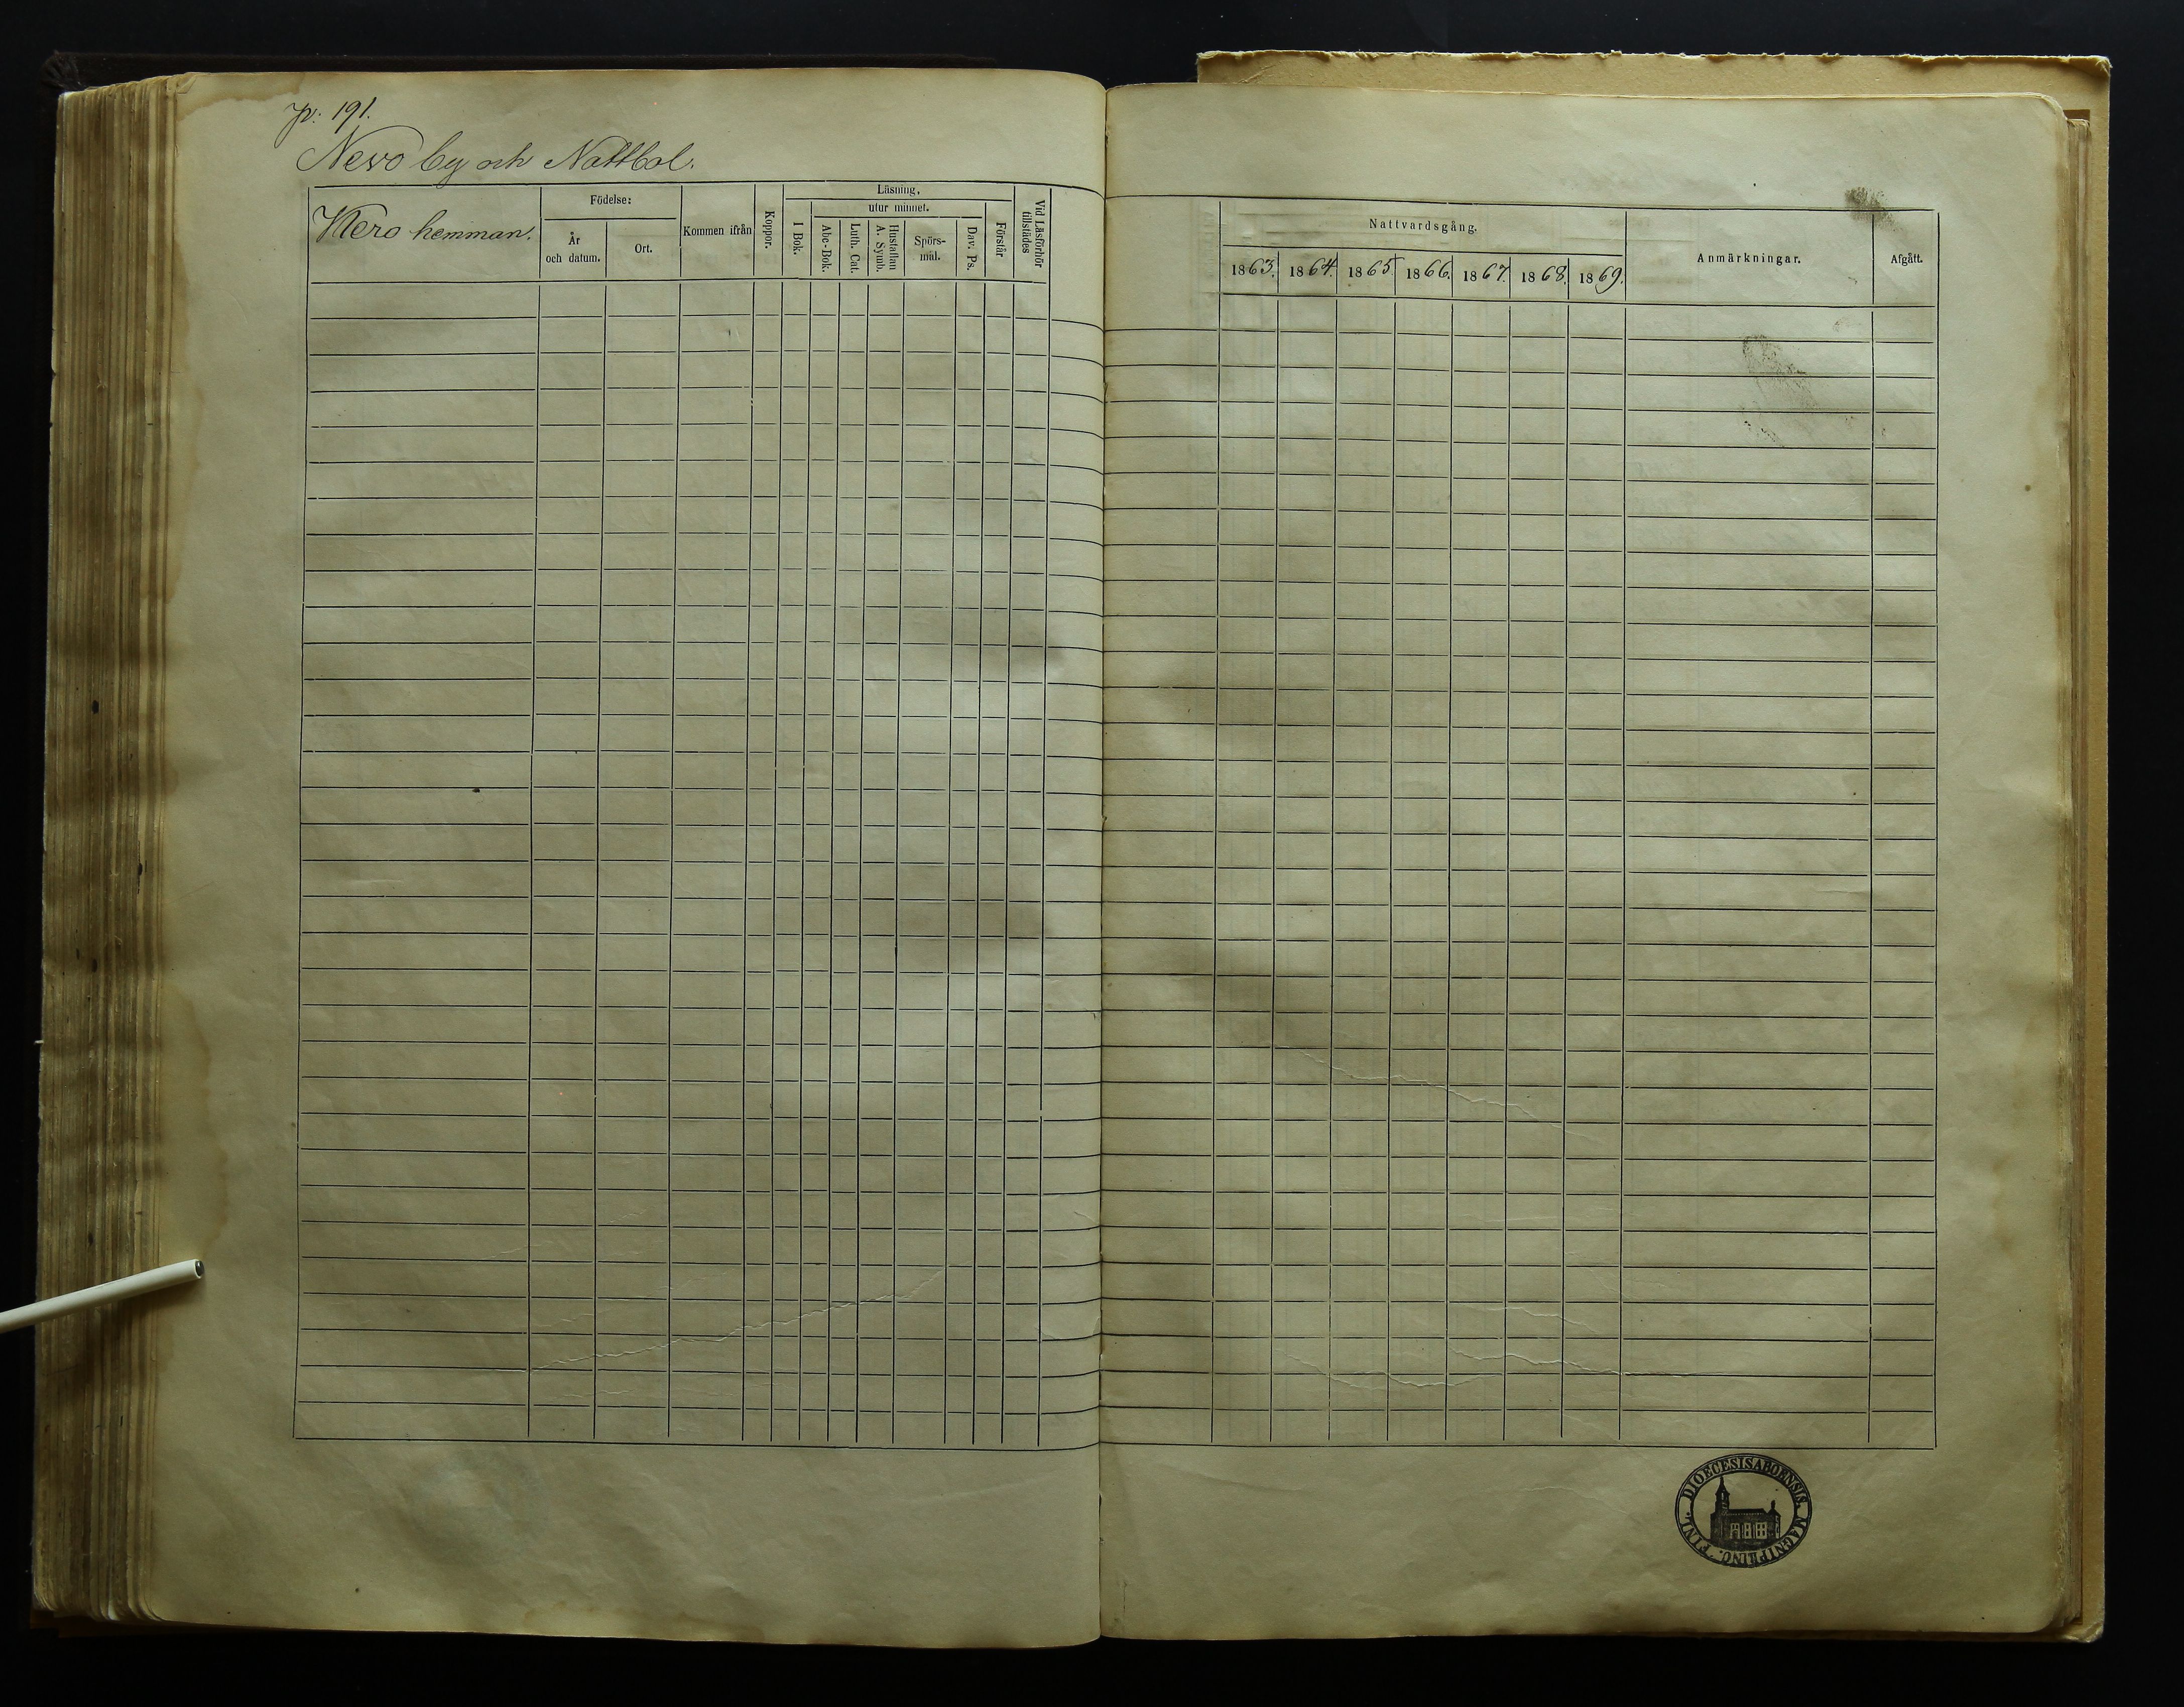 p: 191.
Nevo by och Nattbol.
Mero hemman.
Födelse:
År och datum.
Ort.
Kommen ifrån
Koppor.
Läsning,
utur minnet.
I Bok.
Abc-Bok.
Luth. Cat.
Hustaflan A. Symb.
Spörs-
mål.
Dav. Ps.
Förstår
Vid Läsförhör tillstädes
Nattvardsgång.
1863. 1864. 1865 1866. 1867. 1868. 1869.
Anmärkningar.
Afgått.
DIOECESIS ABOENSIS. MAGNI PRINC. FINL.